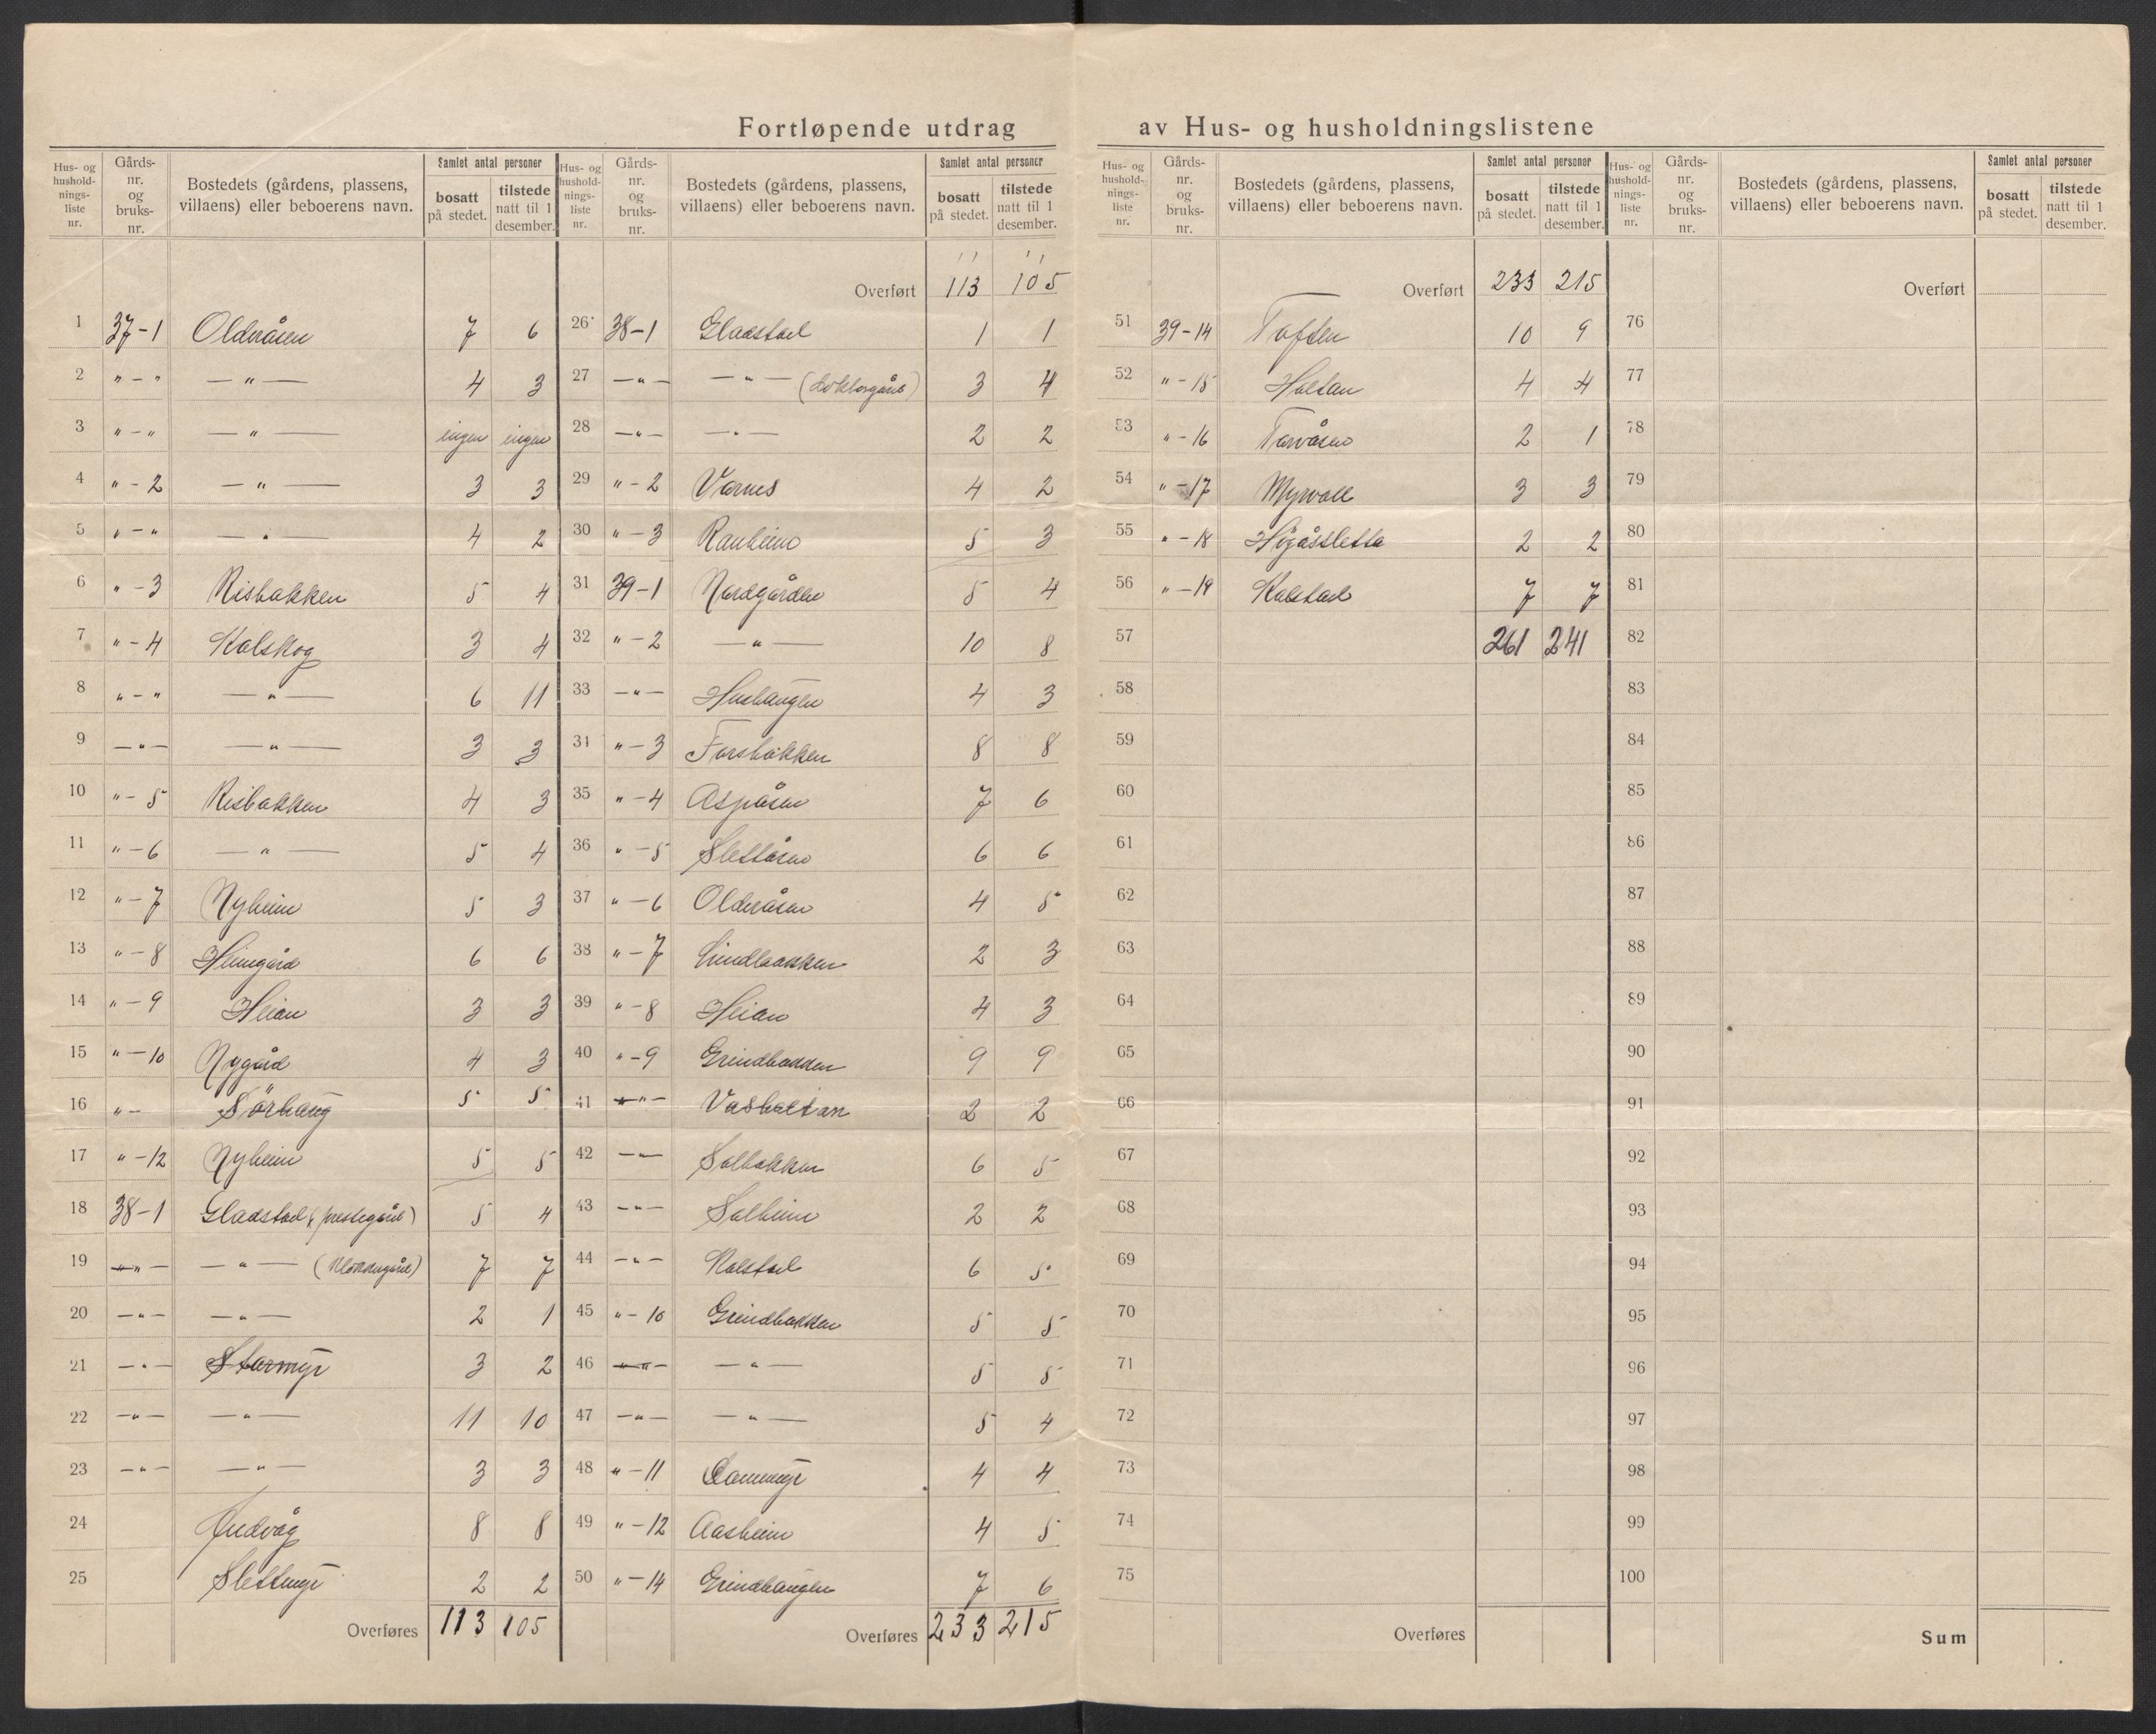 Fortløpende utdrag av Hus- og husholdningslistene
Hus- og husholdnings-liste nr. | Gårds-nr. og bruks-nr. | Bostedets (gårdens, plassens, villaens) eller beboerens navn. | Samlet antal personer bosatt på stedet. | tilstede natt til 1 desember.
1 37-1 Olderåsen 7 6
2 "-" —"— 4 3
3 "-" —"— ingen ingen
4 "-2 —"— 3 3
5 "-" —"— 4 2
6 "-3 Risbakken 5 4
7 "-4 Kalskog 3 4
8 "-" —"— 6 11
9 —"— —"— 3 3
10 "-5 Risbakken 4 3
11 "-6 —"— 5 4
12 "-7 Nyheim 5 3
13 "-8 Heimgård 6 6
14 "-9 Heian 3 3
15 "-10 Nygård 4 3
16 "- Sörhaug 5 5
17 "-12 Nyheim 5 5
18 38-1 Gladstad (prestegård) 5 4
19 —"— —"— (Klokkergård) 7 7
20 —"— —"— 2 1
21 —"— Starmyr 3 2
22 —"— —"— 11 10
23 —"— —"— 3 3
24 Andvåg 8 8
25 Slettmyr 2 2
Overføres 113 105
Hus- og husholdnings-liste nr. | Gårds-nr. og bruks-nr. | Bostedets (gårdens, plassens, villaens) eller beboerens navn. | Samlet antal personer bosatt på stedet. | tilstede natt til 1 desember.
Overført 113 105
26 38-1 Gladstad 1 1
27 —"— —"— (doktorgård) 3 4
28 —"— —"— 2 2
29 "-2 Varnes 4 2
30 "-3 Ranheim 5 3
31 39-1 Nordgården 5 4
32 "-2 —"— 10 8
33 —"— Hushaugen 4 3
34 "-3 Forsbakken 8 8
35 "-4 Aspåsen 7 6
36 "-5 Slettåsen 6 6
37 "-6 Olderåsen 4 5
38 "-7 Grindbakken 2 3
39 "-8 Heian 4 3
40 "-9 Grindbakken 9 9
41 —"— Vasholtan 2 2
42 —"— Solbakken 6 5
43 —"— Solheim 2 2
44 —"— Kalstad 6 5
45 "-10 Grindbakken 5 5
46 —"— —"— 5 5
47 —"— —"— 5 4
48 "-11 4 4
49 "-12 Aasheim 4 5
50 "-14 Grindhaugen 7 6
Overføres 233 215
Hus- og husholdnings-liste nr. | Gårds-nr. og bruks-nr. | Bostedets (gårdens, plassens, villaens) eller beboerens navn. | Samlet antal personer bosatt på stedet. | tilstede natt til 1 desember.
Overført 233 215
51 39-14 Toften 10 9
52 "-15 Holtan 4 4
53 "-16 Torvåsen 2 1
54 "-17 Myrvoll 3 3
55 "-18 Högåssletta 2 2
56 "-19 Kalstad 7 7
57 261 241
58
59
60
61
62
63
64
65
66
67
68
69
70
71
72
73
74
75
Overføres
Hus- og husholdnings-liste nr. | Gårds-nr. og bruks-nr. | Bostedets (gårdens, plassens, villaens) eller beboerens navn. | Samlet antal personer bosatt på stedet. | tilstede natt til 1 desember.
Overført
76
77
78
79
80
81
82
83
84
85
86
87
88
89
90
91
92
93
94
95
96
97
98
99
100
Sum